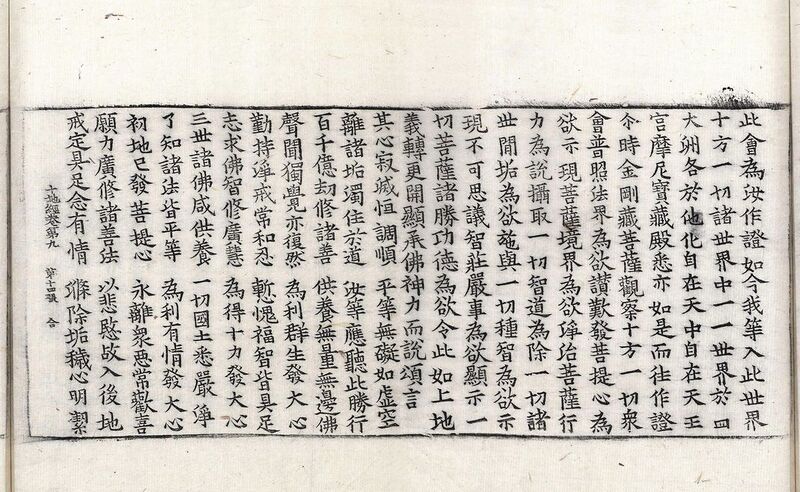 此會為汝作證如今我等入此世界
十方一切諸世界中一一世界於四
大洲各於他化自在天中自在天王
宮摩尼寶藏殿悉亦如是而往作證
尒時金剛藏菩薩觀察十方一切衆
會普照法界為欲讃歎發菩提心為
欲示現菩薩境界為欲淨治菩薩行
力為說攝取一切智道為除一切諸
世間垢為欲施與一切種智為欲示
現不可思議智莊嚴事為欲顯示一
切菩薩諸勝功德為欲令此如上地
義轉更開顯承佛神力而說頌言
其心寂滅恒調順 平等無礙如虛空
離諸垢濁住於道 汝等應聽此勝行
百千億劫修諸善 供養無量無邊佛
聲聞獨覺亦復然 為利群生發大心
勤持淨戒常和忍 慙愧福智皆具足
志求佛智修廣慧 為得十力發大心
三世諸佛咸供養 一切國土悉嚴淨
了知諸法皆平等 為利有情發大心
初地已發菩提心 永離衆惡常歡喜
願力廣修諸善法 以悲愍故入後地
十地經卷第九 第十四張 合
戒定具足念有情 滌除垢穢心明潔